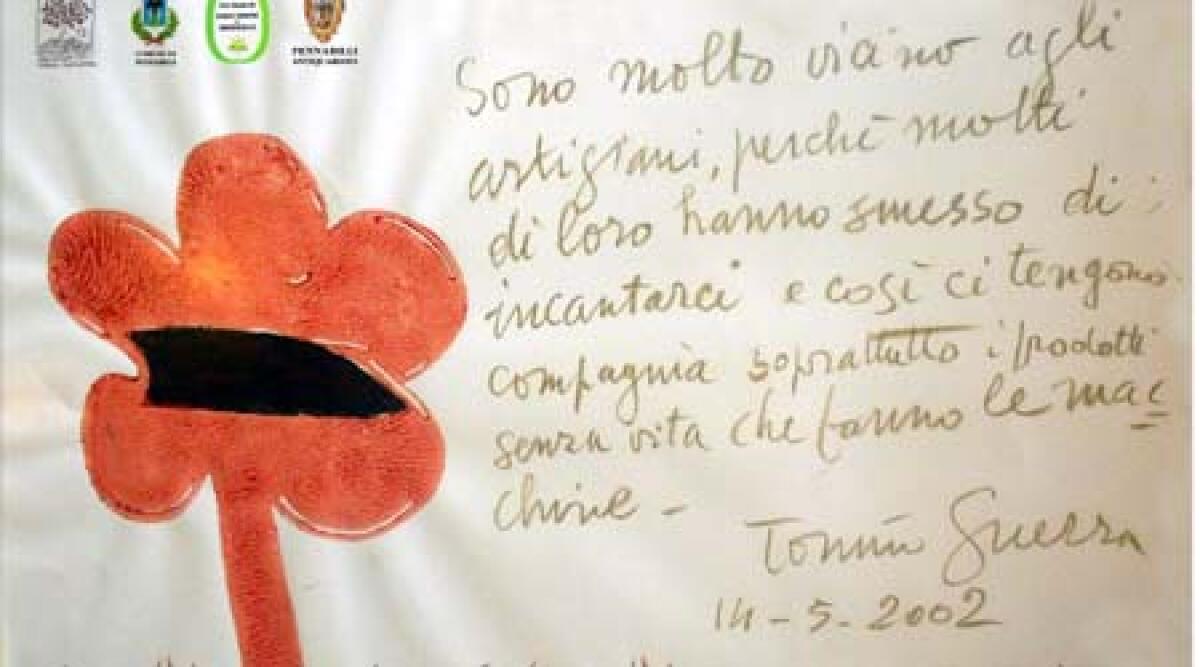 PENNABILLI
ANTIQUARIATO
Sono molto vicino agli
artigiani, perchè molti
di loro hanno smesso di
incantarci e così ci tengono
compagnia soprattutto i prodotti
senza vita che fanno le mac
chine -
Tonino Guerra
14-5.2002